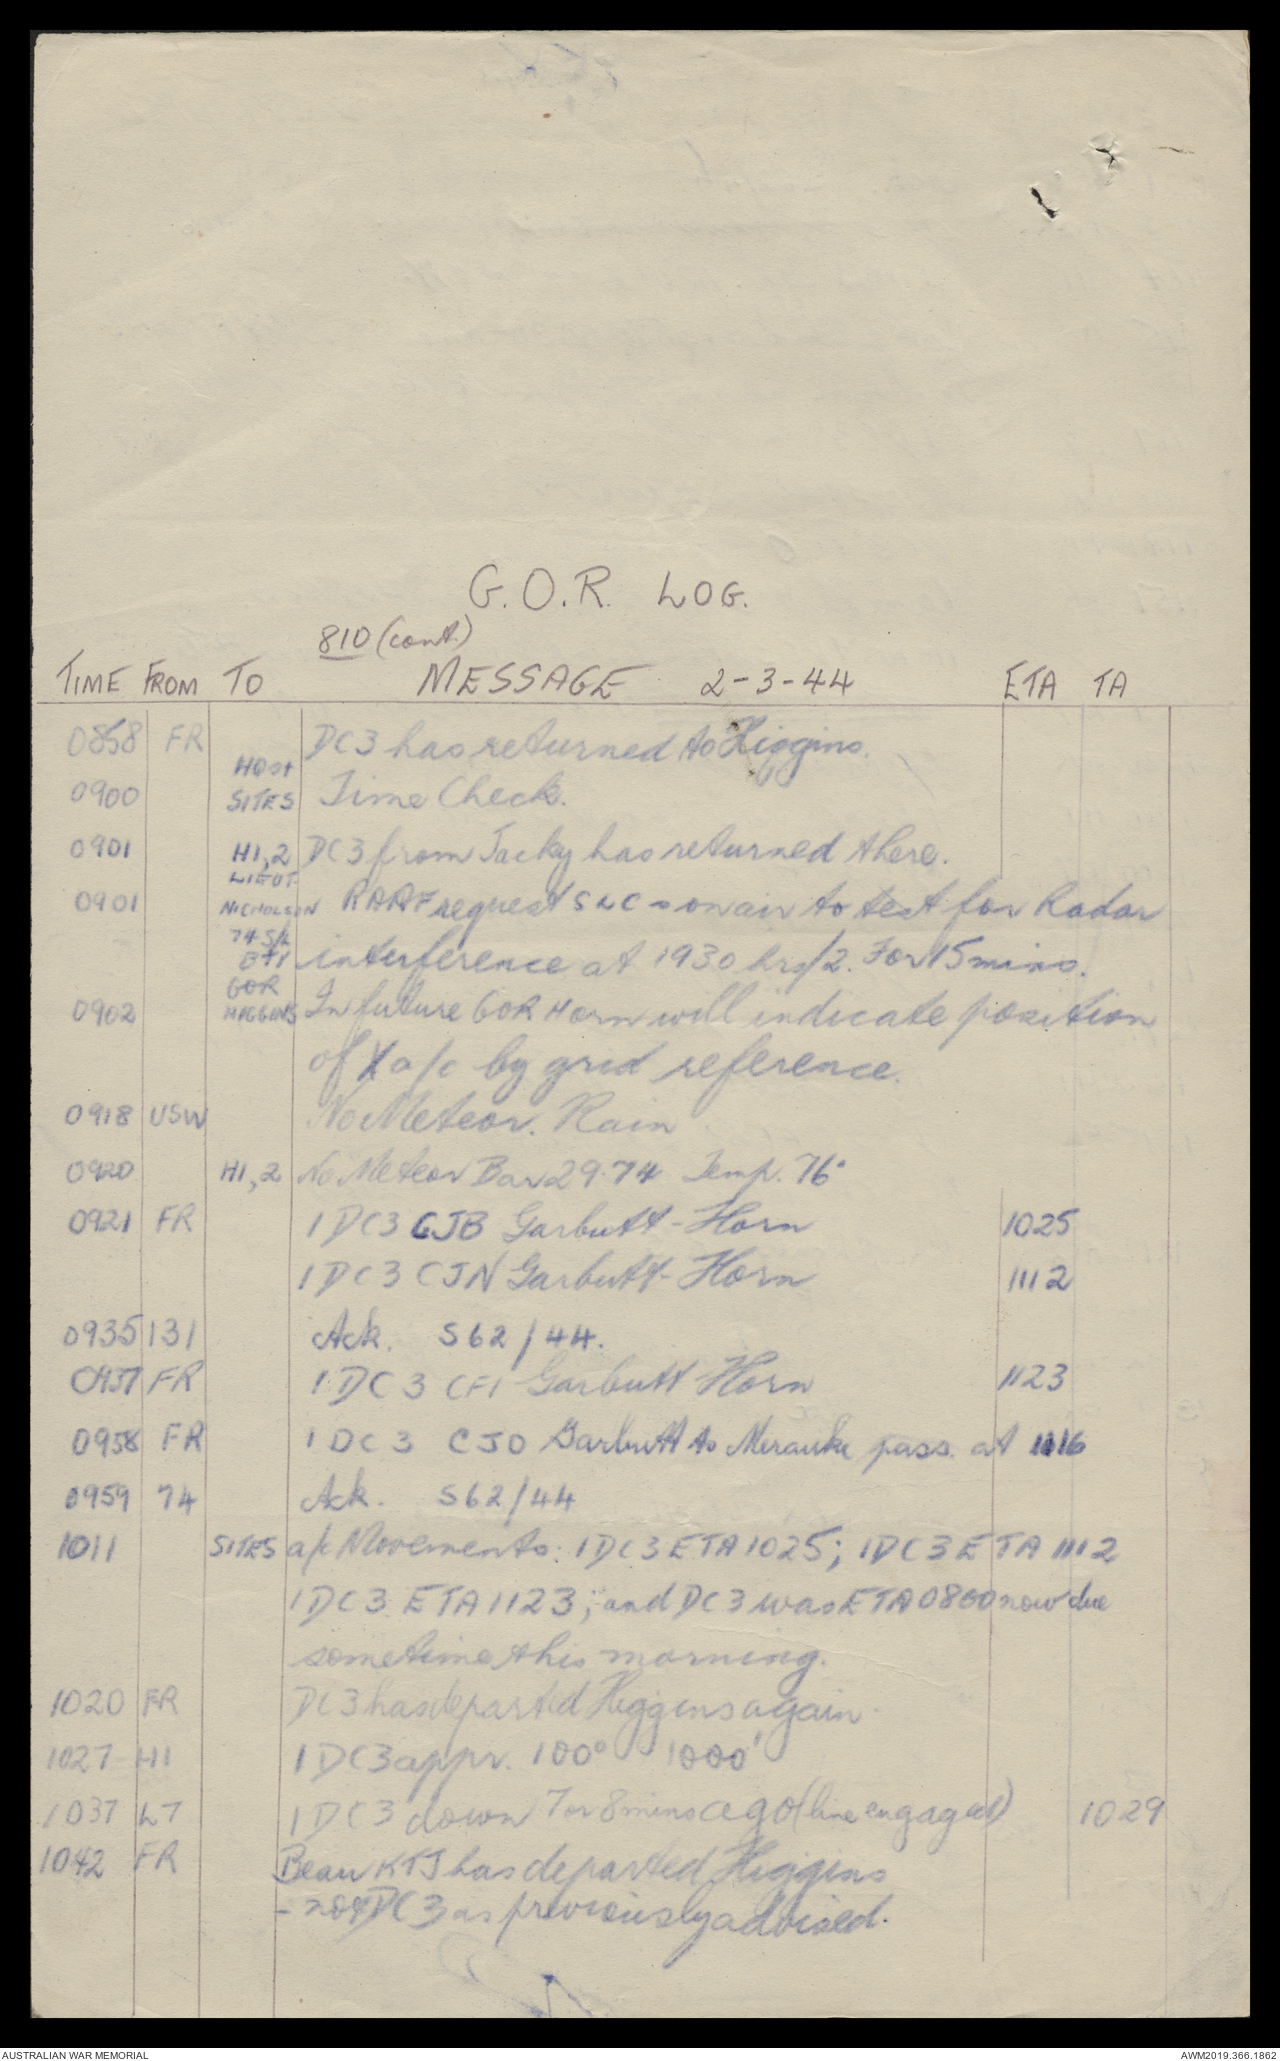 G.O.R. LOG.
810 (cont.)
TIME FROM TO MESSAGE 2-3-44 ETA TA
0858 FR DC3 has returned to Higgins.
HQ
0900 SITES Time Check.
0901 H1,2 DC3 from Jacky has returned there.
LIEUT.
0901 NICHOLSON RAAF request SLCs on air to test for Radar
74 S/L
BTY interference at 1930 hrs/2. For 15 mins.
GOR
0902 HIGGINS In future GOR Horn will indicate position
of X a/c by grid reference.
0918 USW No Meteor. Rain
0920 H1,2 No Meteor Bar 29.74 Temp. 76°
0921 FR 1 DC3 CJB Garbutt - Horn 1025
1 DC3 CJN Garbutt - Horn 1112
0935 131 Ack. S62/44.
0937 FR 1 DC3 CFI Garbutt Horn 1123
0958 FR 1 DC3 CJO Garbutt to Merauke pass. at 1116
0959 74 Ack. S62/44
1011 SITES a/c Movements: 1DC3 ETA 1025; 1DC3 ETA 1112
1DC3 ETA 1123; and DC3 was ETA 0800 now due
sometime this morning.
1020 FR DC3 has departed Higgins again.
1027 H1 1 DC3 appr. 100° 1000'
1037 LT 1 DC3 down 7 or 8 mins ago (line engaged) 1029
1042 FR Beau KTJ has departed Higgins
- not DC3 as previously advised.
AUSTRALIAN WAR MEMORIAL AWM2019.366.1862